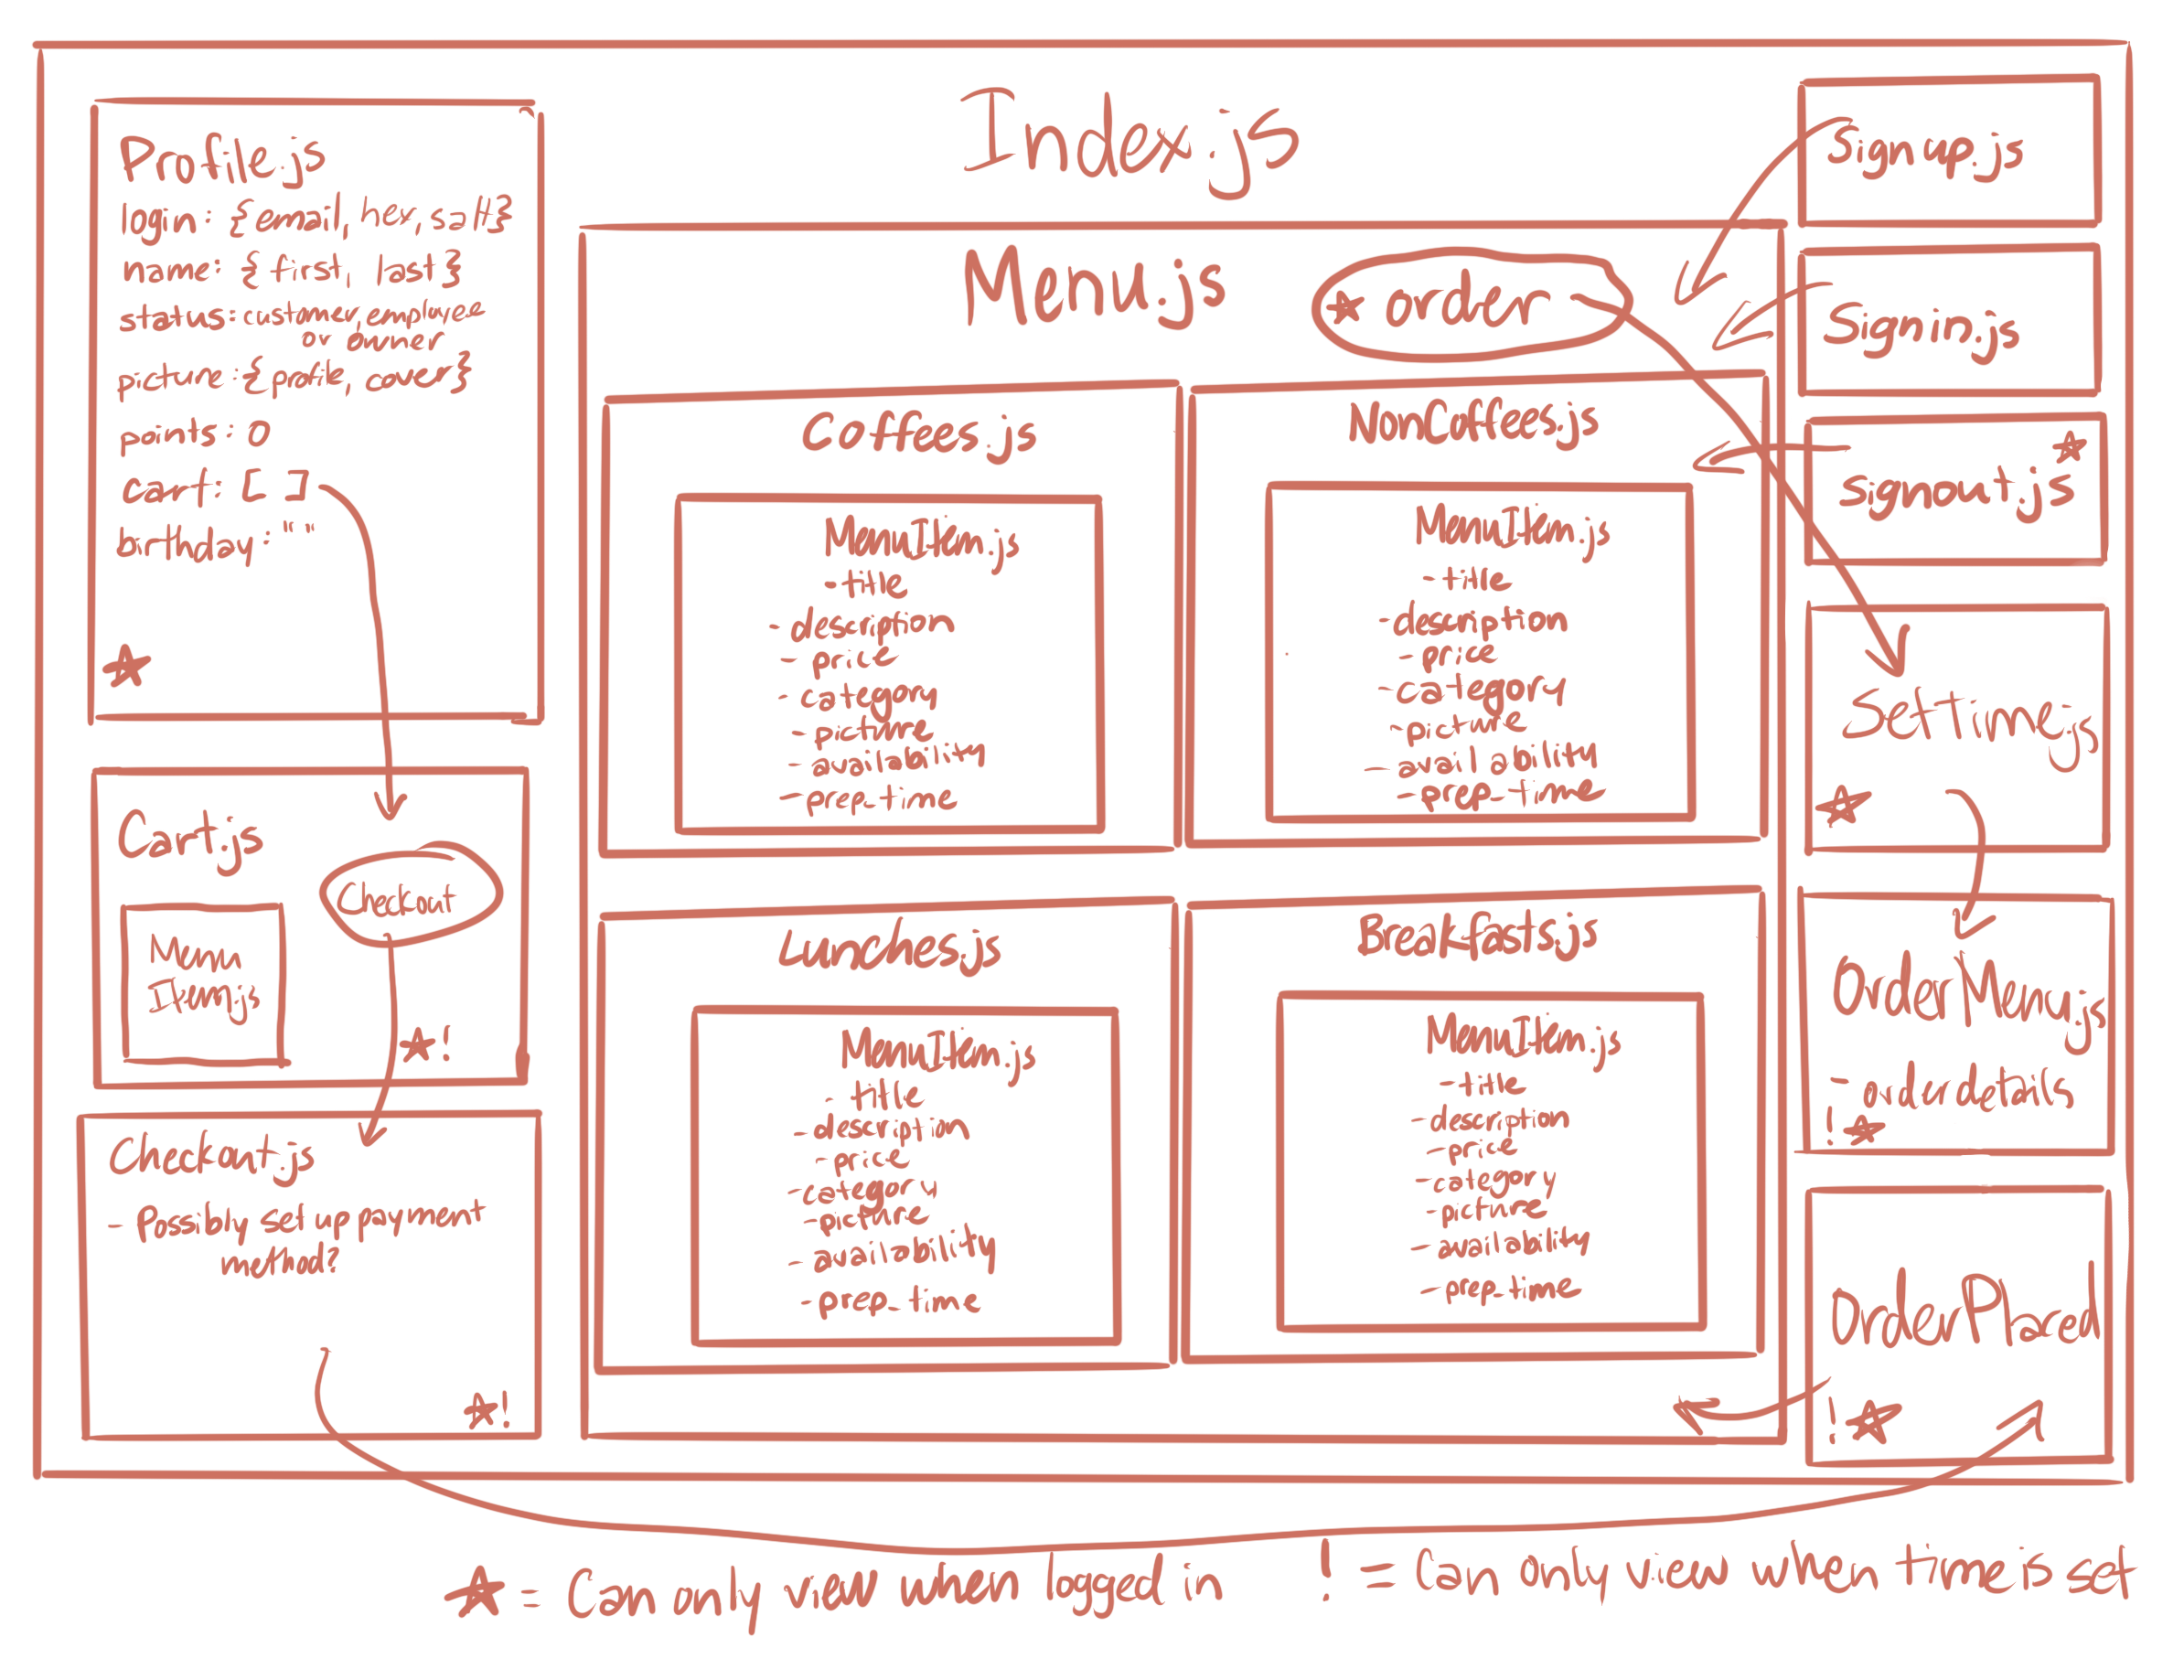 Index.js
Profile.js
login: {email, hex, salt}
name: {first, last}
status: customer, employee
or owner
picture: {profile, cover}
points: 0
cart: [ ]
birthday: ""
★
Cart.js
Menu
Item.js
Checkout
★!
Checkout.js
- Possibly set up payment
method?
★!
Menu.js
★ order
Coffees.js
MenuItem.js
- title
- description
- price
- category
- picture
- availability
- prep_time
NonCoffees.js
MenuItem.js
- title
- description
- price
- category
- picture
- availability
- prep_time
Lunches.js
MenuItem.js
- title
- description
- price
- category
- picture
- availability
- prep_time
Breakfasts.js
MenuItem.js
- title
- description
- price
- category
- picture
- availability
- prep_time
Signup.js
Signin.js
signout.js ★
SetTime.js
★
OrderMenu.js
- orderdetails
! ★
OrderPlaced
! ★
★ = Can only view when logged in
! = Can only view when time is set